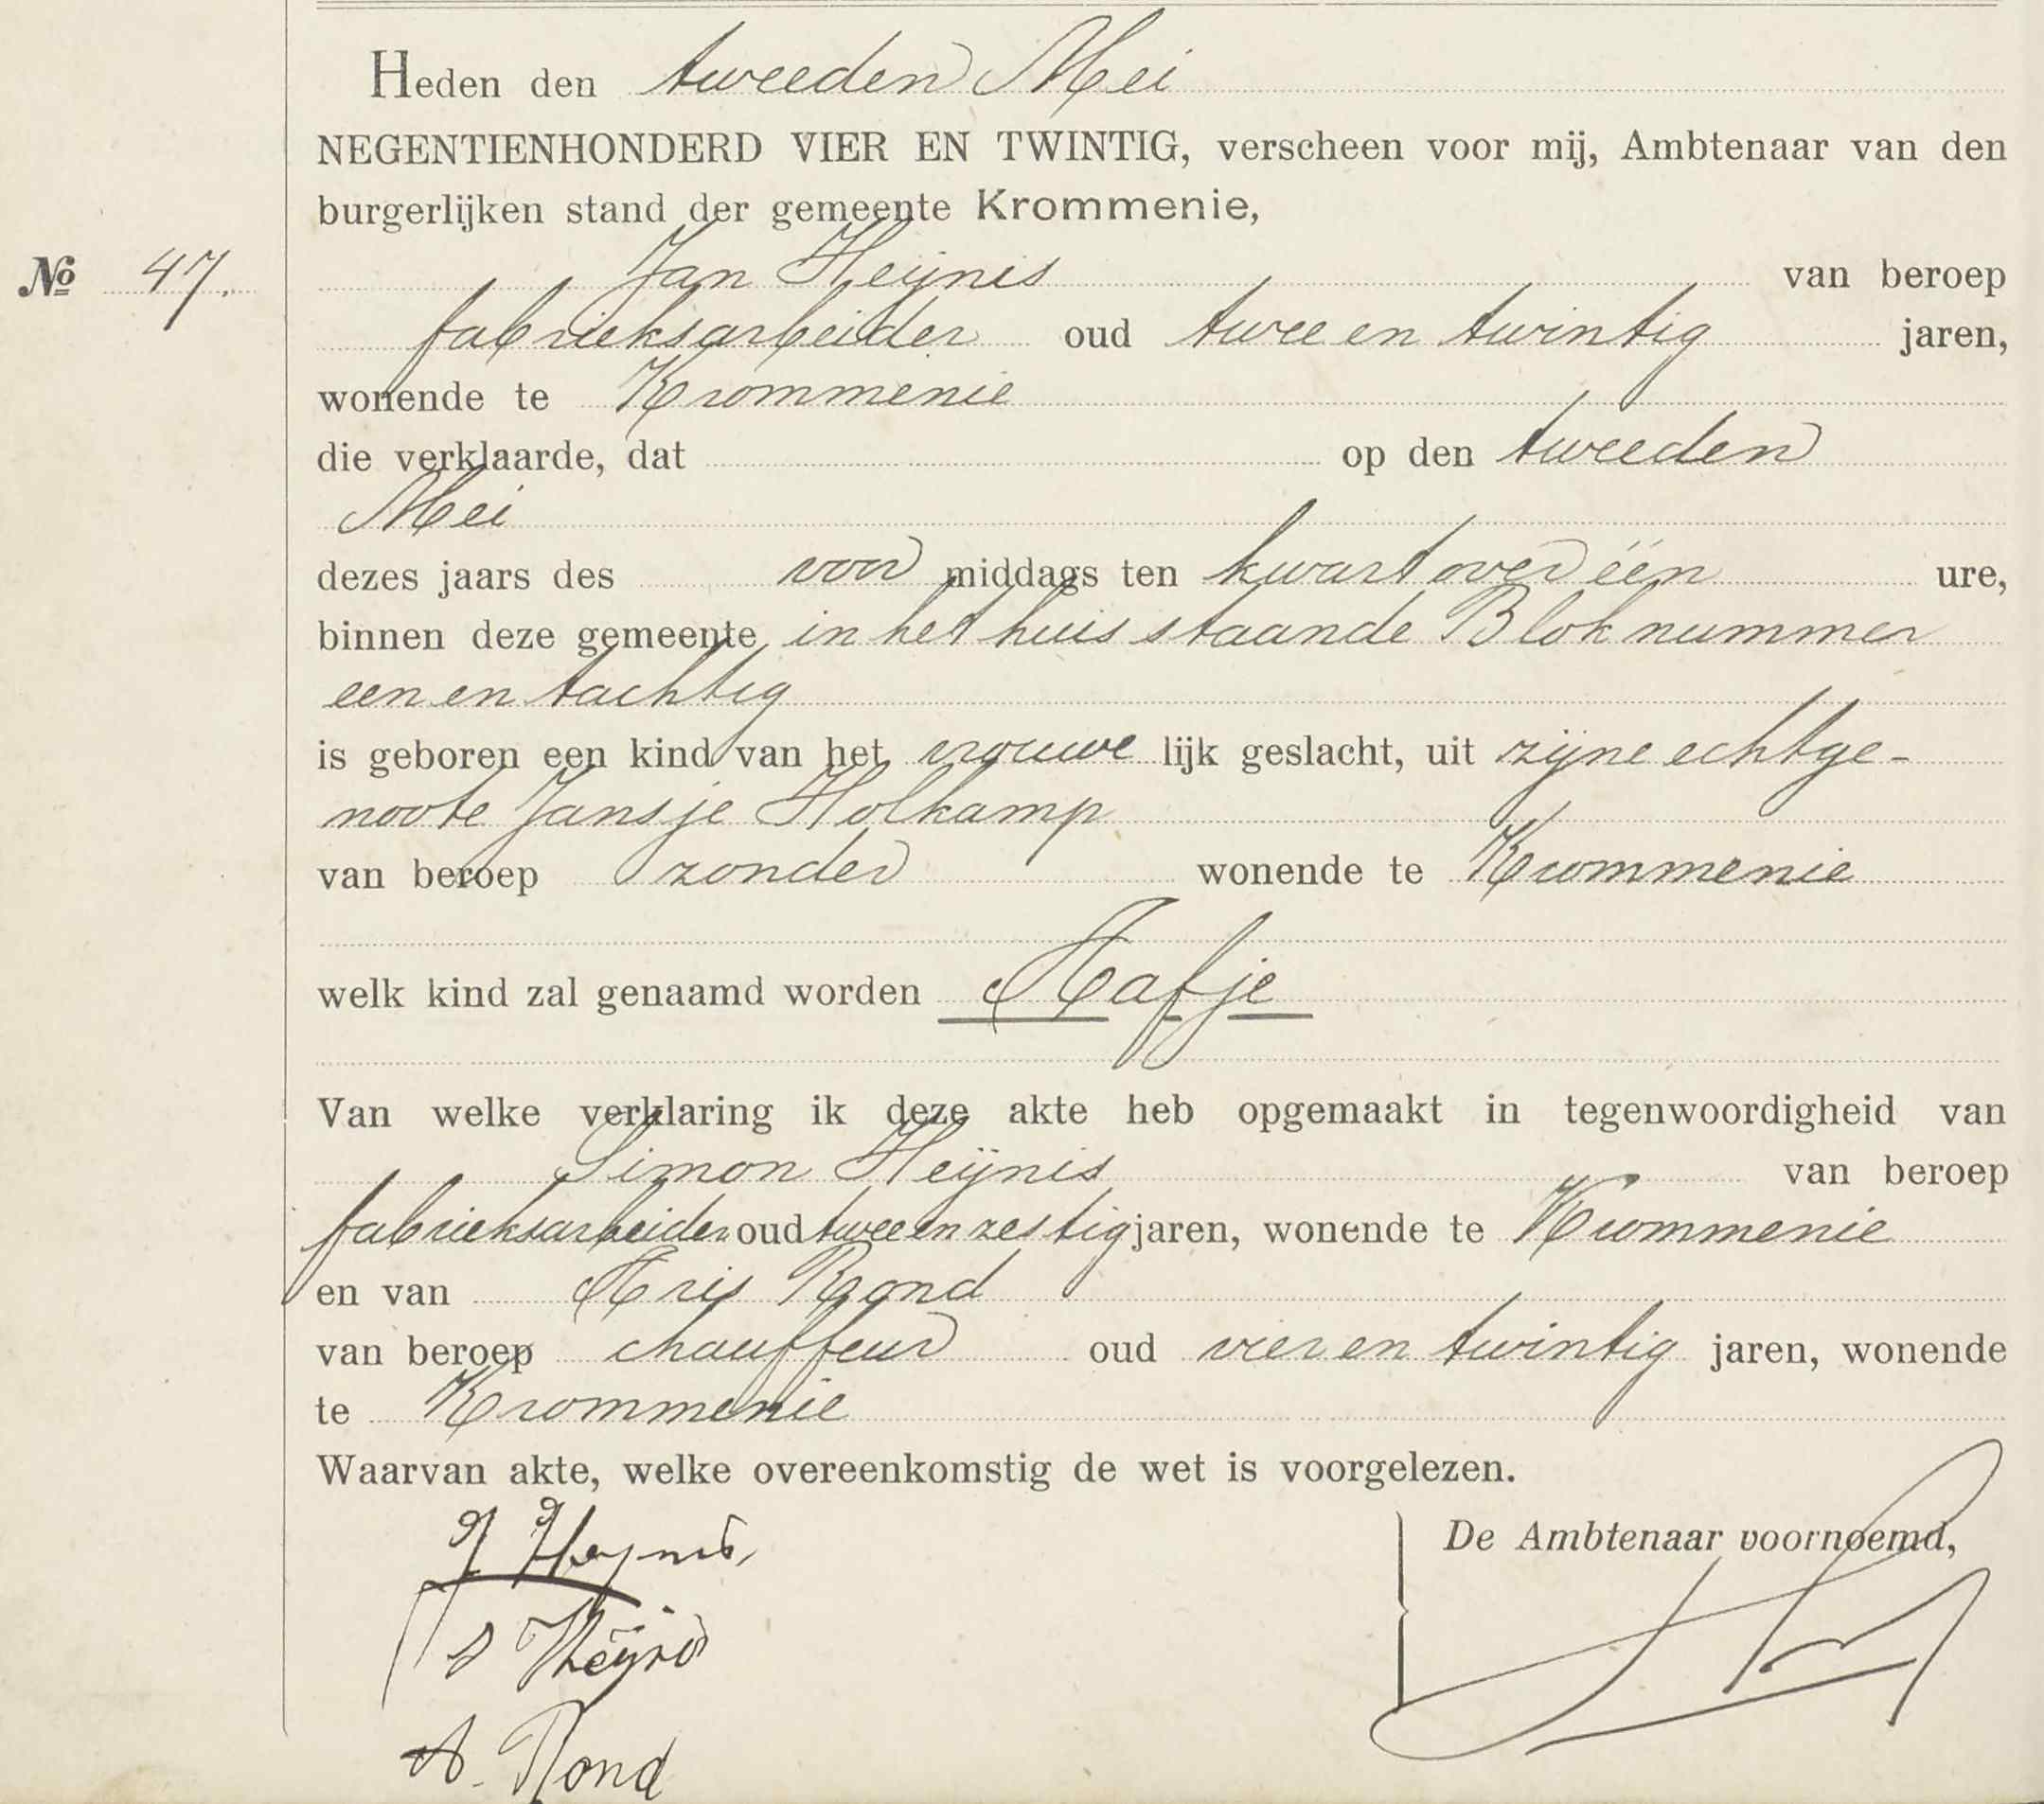 Heden den tweeden Mei
NEGENTIENHONDERD VIER EN TWINTIG, verscheen voor mij, Ambtenaar van den
burgerlijken stand der gemeente Krommenie,
No 47. Jan Heijnis van beroep
fabrieksarbeider oud twee en twintig jaren,
wonende te Krommenie
die verklaarde, dat op den tweeden
Mei
dezes jaars des voor middags ten kwart over één ure,
binnen deze gemeente in het huis staande Blok nummer
een en tachtig
is geboren een kind van het vrouwe lijk geslacht, uit zijne echtge-
noote Jansje Holkamp
van beroep zonder wonende te Krommenie
welk kind zal genaamd worden Aafje
Van welke verklaring ik deze akte heb opgemaakt in tegenwoordigheid van
Simon Heijnis van beroep
fabrieksarbeider oud twee en zestig jaren, wonende te Krommenie
en van Aris Rond
van beroep chauffeur oud vier en twintig jaren, wonende
te Krommenie
Waarvan akte, welke overeenkomstig de wet is voorgelezen.
De Ambtenaar voornoemd,
J Heynis,
S Heijnis
A. Rond